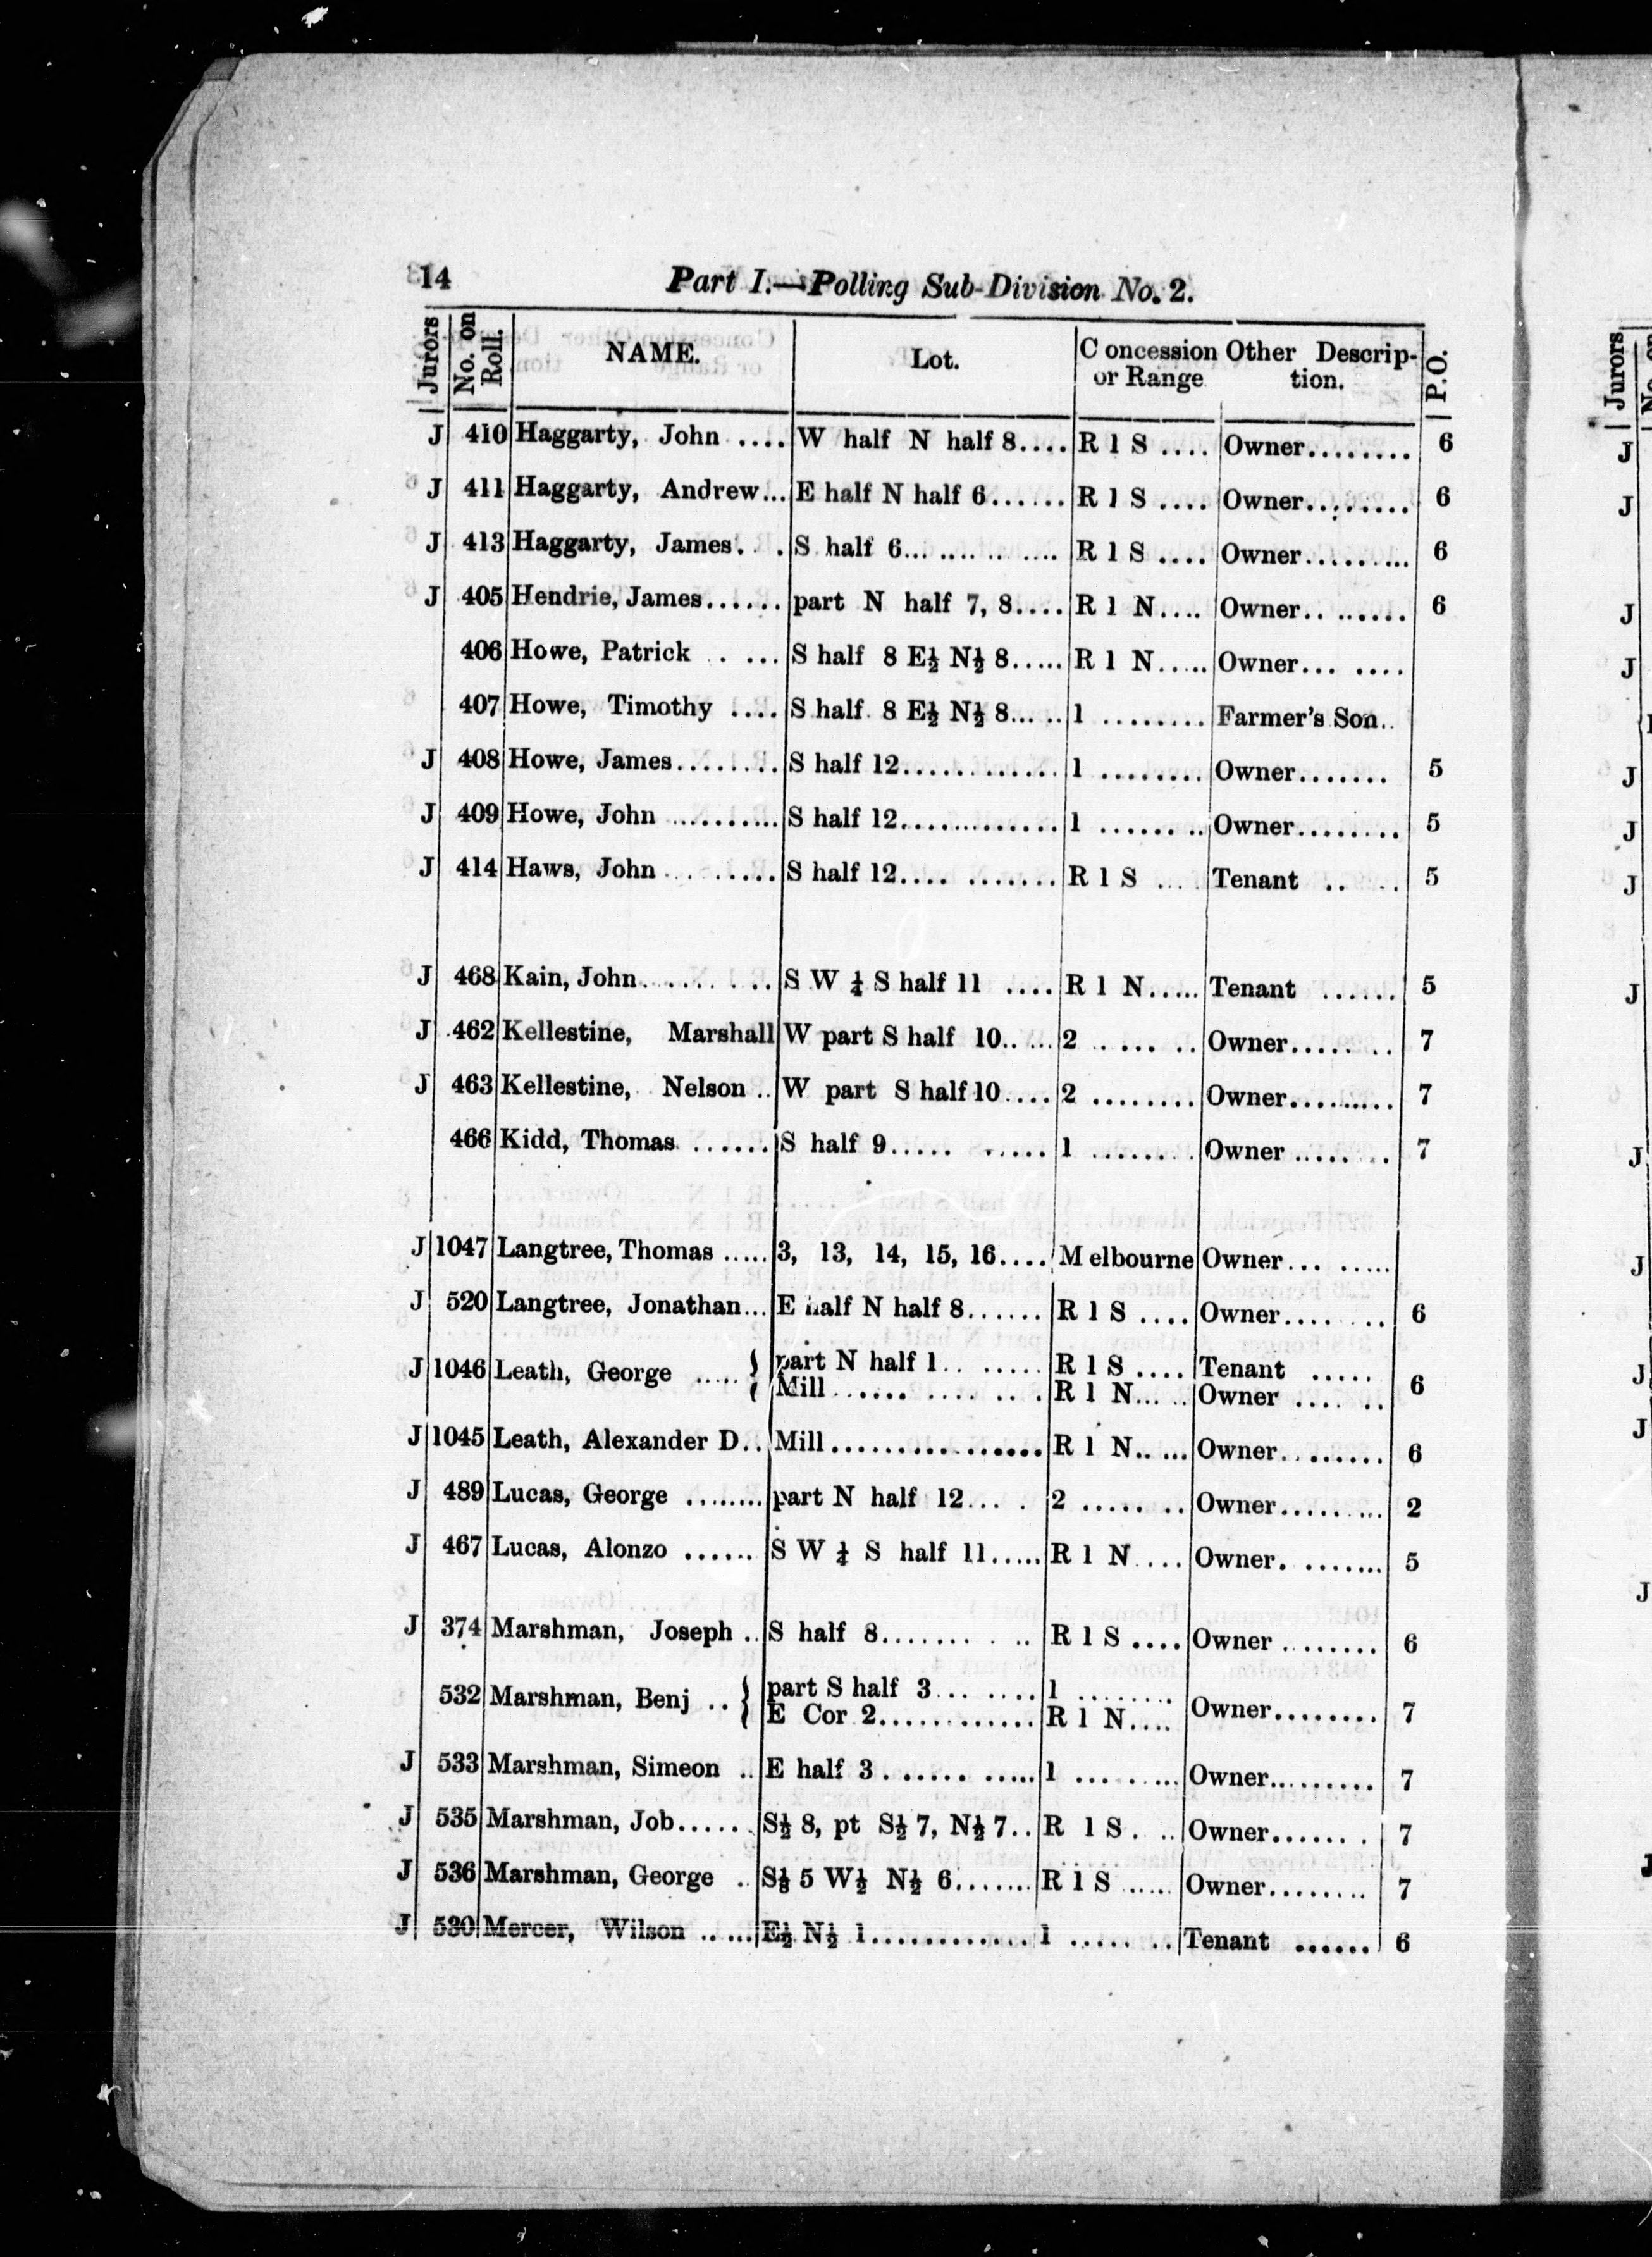 14 Part I.—Polling Sub-Division No. 2.
Jurors No. on Roll. NAME. Lot. Concession or Range Other Description. P.O.
J 410 Haggarty, John .... W half N half 8.... R 1 S .... Owner........ 6
J 411 Haggarty, Andrew... E half N half 6...... R 1 S .... Owner........ 6
J 413 Haggarty, James. . S half 6.............. R 1 S .... Owner......... 6
J 405 Hendrie, James...... part N half 7, 8.... R 1 N.... Owner........ 6
406 Howe, Patrick . ... S half 8 E½ N½ 8..... R 1 N..... Owner... ....
407 Howe, Timothy .... S half 8 E½ N½ 8..... 1 ........ Farmer's Son..
J 408 Howe, James........ S half 12............ 1 ........ Owner....... 5
J 409 Howe, John .......... S half 12............. 1 ........ Owner........ 5
J 414 Haws, John ......... S half 12.... ....... R 1 S .... Tenant .. .. 5
J 468 Kain, John......... S W ¼ S half 11 .... R 1 N..... Tenant ...... 5
J 462 Kellestine, Marshall W part S half 10..... 2 ....... Owner....... 7
J 463 Kellestine, Nelson .. W part S half 10.... 2 ........ Owner......... 7
466 Kidd, Thomas ...... S half 9..... ..... 1 ........ Owner ........ 7
J 1047 Langtree, Thomas ..... 3, 13, 14, 15, 16.... Melbourne Owner... .....
J 520 Langtree, Jonathan... E half N half 8...... R 1 S .... Owner........ 6
J 1046 Leath, George ..... { part N half 1........ R 1 S .... Tenant ..... 6
Mill .............. R 1 N..... Owner ......
J 1045 Leath, Alexander D.. Mill............... R 1 N..... Owner........ 6
J 489 Lucas, George ........ part N half 12... . 2 ....... Owner........ 2
J 467 Lucas, Alonzo ...... S W ¼ S half 11..... R 1 N.... Owner........ 5
J 374 Marshman, Joseph .. S half 8....... .. R 1 S .... Owner ........ 6
532 Marshman, Benj .. { part S half 3........ 1 ........ Owner........ 7
E Cor 2............ R 1 N....
J 533 Marshman, Simeon .. E half 3 ........... 1 ........ Owner......... 7
J 535 Marshman, Job...... S½ 8, pt S½ 7, N½ 7.. R 1 S. .. Owner....... 7
J 536 Marshman, George . S½ 5 W½ N½ 6....... R 1 S ..... Owner........ 7
J 530 Mercer, Wilson ...... E½ N½ 1............ 1 ....... Tenant ...... 6
Jurors
J
J
J
J
J
J
J
J
J
J
J
J
J